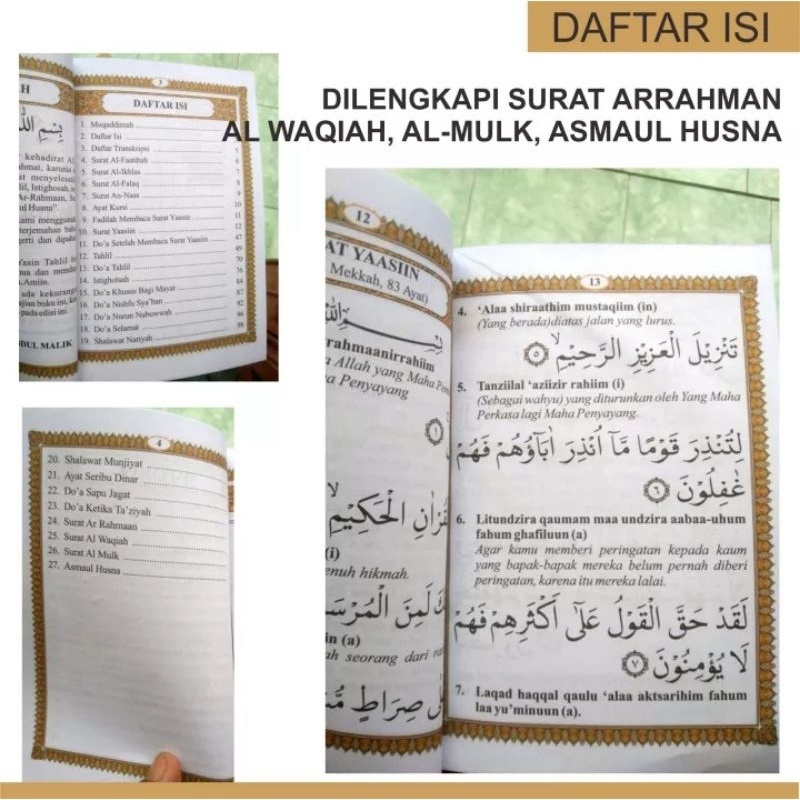 DAFTAR ISI
DILENGKAPI SURAT ARRAHMAN
AL WAQIAH, AL-MULK, ASMAUL HUSNA
3
DAFTAR ISI
1. Muqaddimah
2. Daftar Isi
3. Daftar Transkopsi
4. Surat Al-Faatihah
5. Surat Al-Ikhlas
6. Surat Al-Falaq
7. Surat An-Naas
8. Ayat Kursi
9. Fadilah Membaca Surat Yaasiin
10. Surat Yaasiin
11. Do'a Setelah Membaca Surat Yaasiin
12. Tahlil
13. Do'a Tahlil
14. Istighotsah
15. Do'a Khusus Bagi Mayat
16. Do'a Nishfu Sya'ban
17. Do'a Nurun Nubuwwah
18. Do'a Selamat
19. Shalawat Nariyah
4
20. Shalawat Munjiyat
21. Ayat Seribu Dinar
22. Do'a Sapu Jagat
23. Do'a Ketika Ta'ziyah
24. Surat Ar Rahmaan
25. Surat Al Waqiah
26. Surat Al Mulk
27. Asmaul Husna
12
AT YAASIIN
Mekkah, 83 Ayat)
rahmaanirrahiim
Allah yang Maha
Penyayang
الْحَكِيْمِ
(i)
enuh hikmah.
لَمِنَ
in (a)
ah seorang dari
صِرَاطٍ
13
4. 'Alaa shiraathim mustaqiim (in)
(Yang berada)diatas jalan yang lurus.
تَنْزِيْلَ الْعَزِيْزِ الرَّحِيْمِ ۙ ٥
5. Tanziilal 'aziizir rahiim (i)
(Sebagai wahyu) yang diturunkan oleh Yang Maha
Perkasa lagi Maha Penyayang.
لِتُنْذِرَ قَوْمًا مَّآ اُنْذِرَ اٰبَاۤؤُهُمْ فَهُمْ
غٰفِلُوْنَ ٦
6. Litundzira qaumam maa undzira aabaa-uhum
fahum ghafiluun (a)
Agar kamu memberi peringatan kepada kaum
yang bapak-bapak mereka belum pernah diberi
peringatan, karena itu mereka lalai.
لَقَدْ حَقَّ الْقَوْلُ عَلٰٓى اَكْثَرِهِمْ فَهُمْ
لَا يُؤْمِنُوْنَ ٧
7. Laqad haqqal qaulu 'alaa aktsarihim fahum
laa yu'minuun (a).